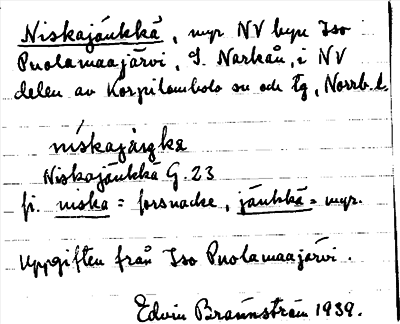 Niskajänkkä, myr NV byn Iso
Puolamaajärvi, S. Narkån, i NV
delen av Korpilombolo sn och tg, Norrb. l.
niskajäŋkɛ
Niskajänkkä G. 23
fi. niska = forsnacke, jänkkä = myr.
Uppgiften från Iso Puolamaajärvi.
Edvin Brännström 1939.